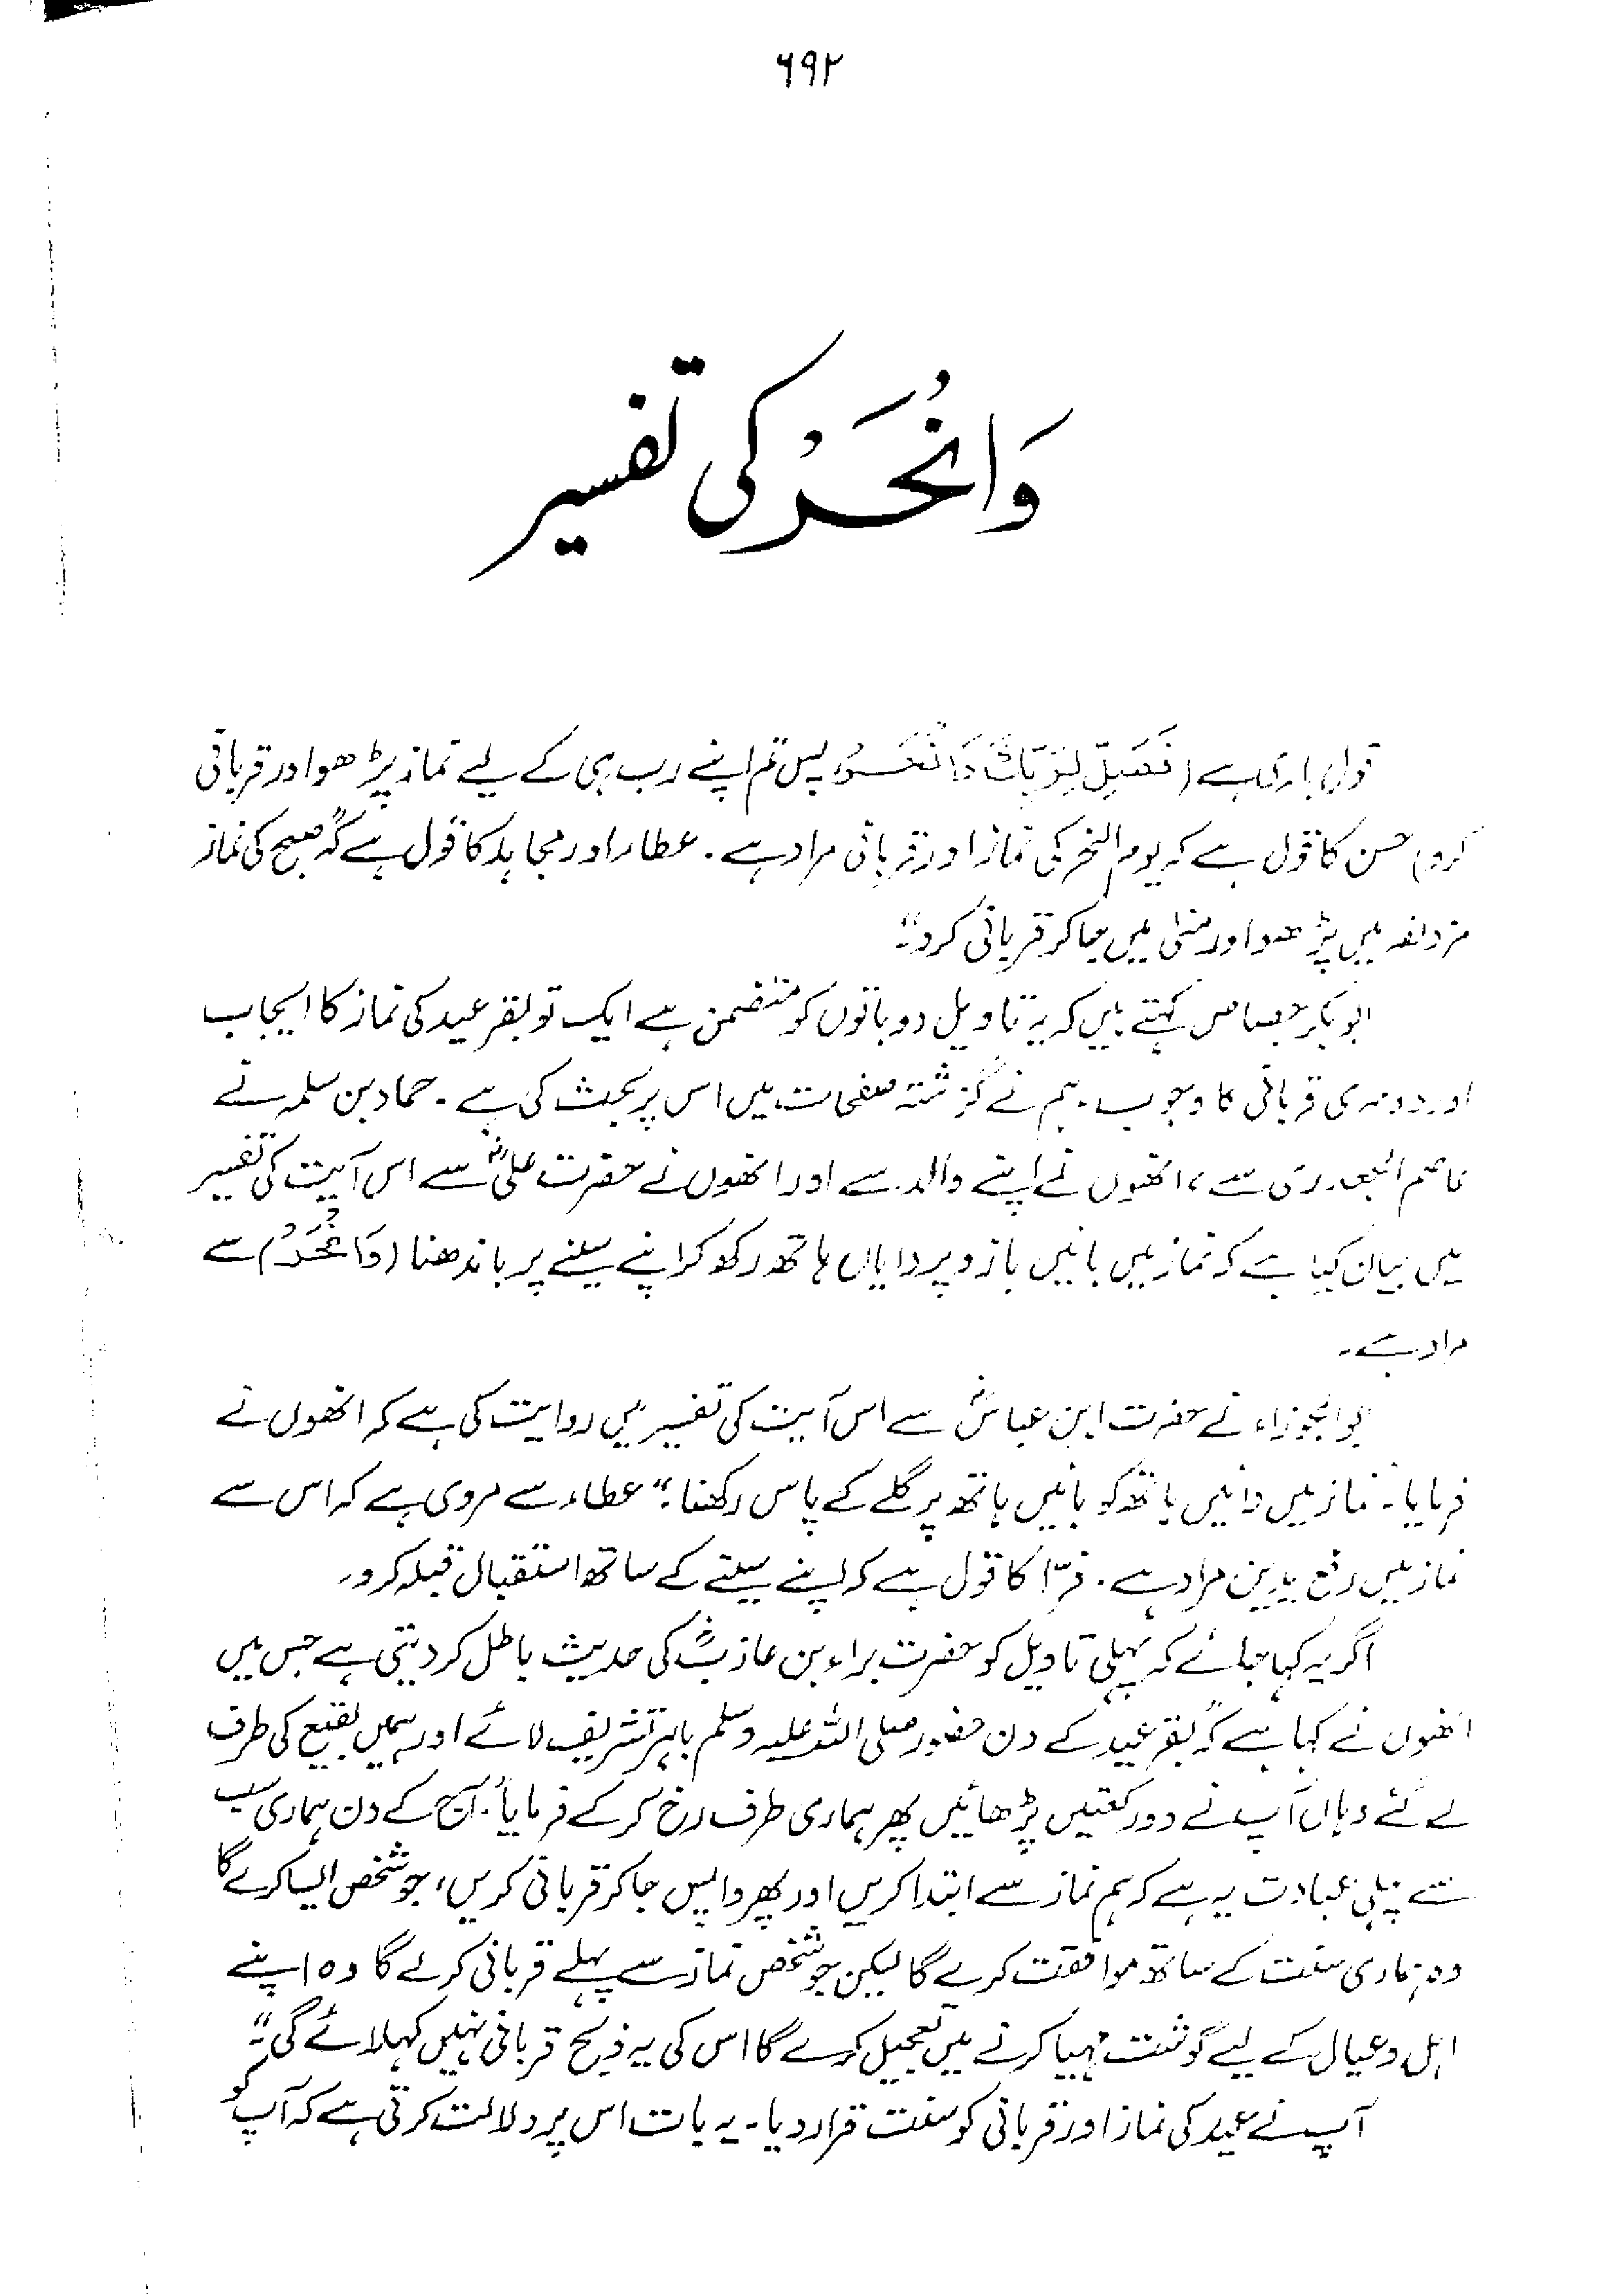 ۶۹۲
وَانْحَرْ کی تفسیر
قول باری ہے (فَصَلِّ لِرَبِّكَ وَانْحَرْ، پس تم اپنے رب ہی کے لیے نماز پڑھو اور قربانی
کرو) حسن کا قول ہے کہ یوم النحر کی نماز اور قربانی مراد ہے۔ عطاء اور مجاہد کا قول ہے کہ "صبح کی نماز
مزدلفہ میں پڑھو اور منیٰ میں جا کر قربانی کرو۔"
ابوبکر جصاص کہتے ہیں کہ یہ تاویل دو باتوں کو متضمن ہے ایک تو بقر عید کی نماز کا ایجاب
اور دوسری قربانی کا وجوب۔ ہم نے گزشتہ صفحات میں اس پر بحث کی ہے۔ حماد بن سلمہ نے
عاصم الجحدری سے، انھوں نے اپنے والد سے اور انھوں نے حضرت علیؓ سے اس آیت کی تفسیر
میں بیان کیا ہے کہ نماز میں بائیں بازو پر دایاں ہاتھ رکھ کر اپنے سینے پر باندھنا (وَانْحَرْ) سے
مراد ہے۔
ابوالجوزاء نے حضرت ابن عباسؓ سے اس آیت کی تفسیر میں روایت کی ہے کہ انھوں نے
فرمایا۔ نماز میں دائیں ہاتھ کو بائیں ہاتھ پر گلے کے پاس رکھنا۔" عطاء سے مروی ہے کہ اس سے
نماز میں رفع یدین مراد ہے۔ فرّا کا قول ہے کہ اپنے سینے کے ساتھ استقبال قبلہ کرو۔
اگر یہ کہا جائے کہ پہلی تاویل کو حضرت براء بن عازبؓ کی حدیث باطل کر دیتی ہے جس میں
انھوں نے کہا ہے کہ "بقر عید کے دن حضور صلی اللہ علیہ وسلم باہر تشریف لائے اور ہمیں بقیع کی طرف
لے گئے وہاں آپ نے دو رکعتیں پڑھائیں پھر ہماری طرف رخ کر کے فرمایا "آج کے دن ہماری سب
سے پہلی عبادت یہ ہے کہ ہم نماز سے ابتدا کریں اور پھر واپس جا کر قربانی کریں، جو شخص ایسا کرے گا
وہ ہماری سنت کے ساتھ موافقت کرے گا لیکن جو شخص نماز سے پہلے قربانی کرے گا وہ اپنے
اہل و عیال کے لیے گوشت مہیا کرنے میں تعجیل کرے گا اس کی یہ ذبح قربانی نہیں کہلائے گی۔"
آپ نے عید کی نماز اور قربانی کو سنت قرار دیا۔ یہ بات اس پر دلالت کرتی ہے کہ آپ کو